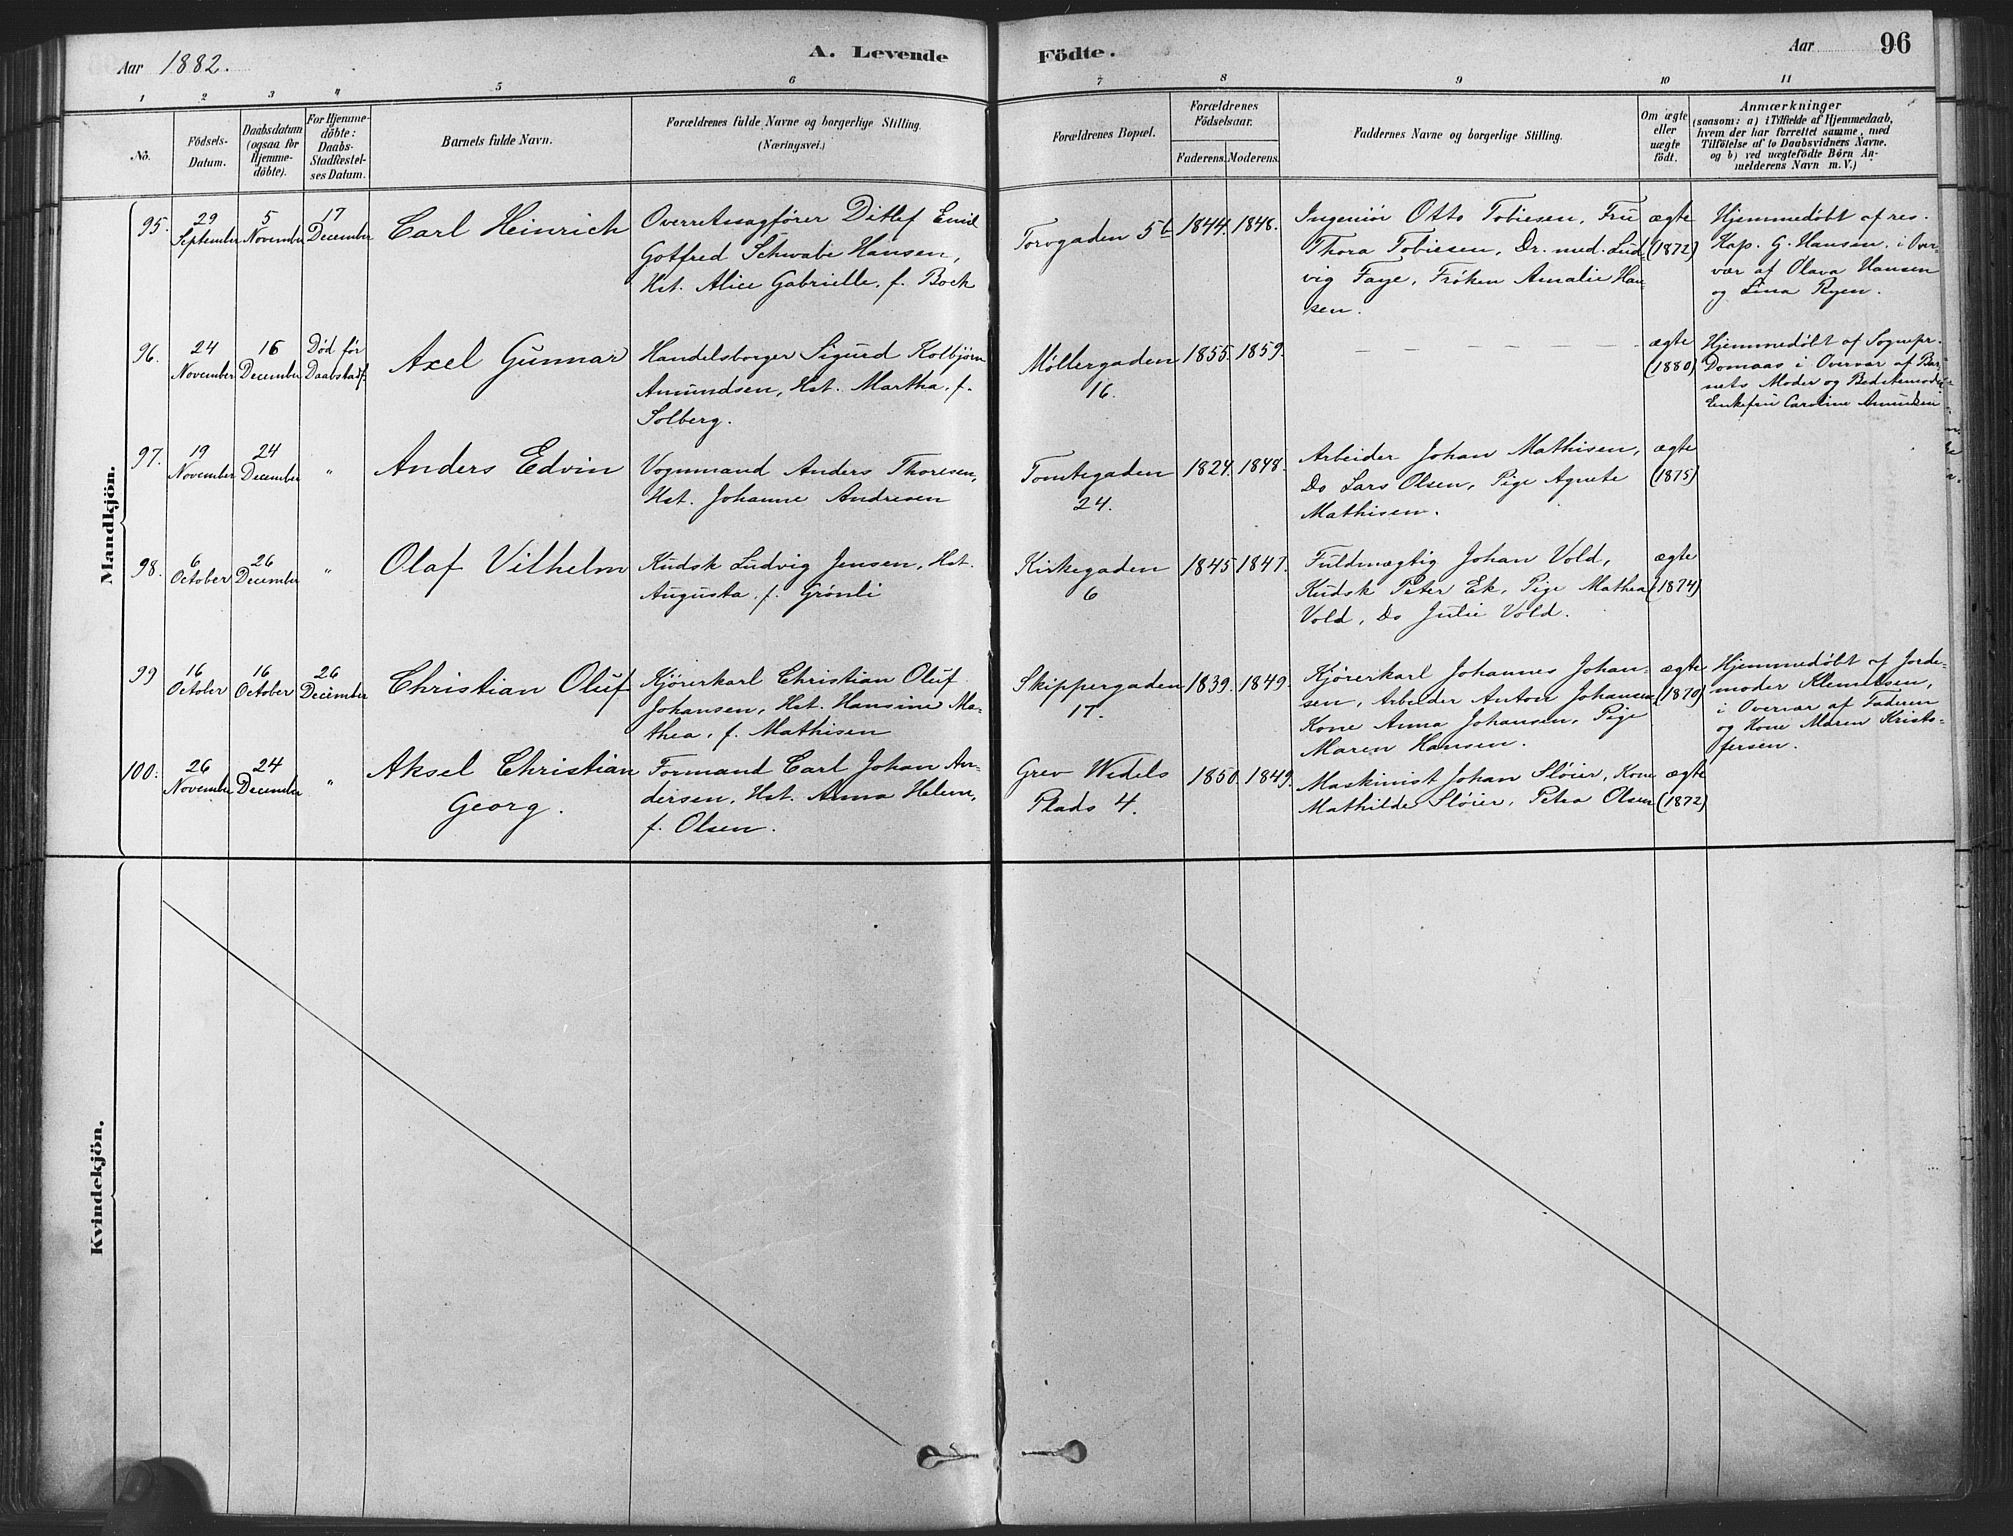 Aar 1882.
A. Levende
Födte.
Aar
96
1 2 3 4 5 6 7 8 9 10 11
No.
Födsels-
Datum.
Daabsdatum
(ogsaa for
Hjemme-
döbte).
For Hjemme-
döbte:
Daabs-
Stadfæstel-
ses Datum.
Barnets fulde Navn.
Forældrenes fulde Navne og borgerlige Stilling.
(Næringsvei.)
Forældrenes Bopæl.
Forældrenes
Födselsaar.
Faderens. Moderens.
Faddernes Navne og borgerlige Stilling.
Om ægte
eller
uægte
födt.
Anmærkninger
(saasom: a) i Tilfælde af Hjemmedaab,
hvem der har forrettet samme, med
Tilföielse af to Daabsvidners Navne.
og b) ved uægtefödte Börn An-
melderens Navn m. V.)
Mandkjön.
95.
29
September
5
November
17
December
Carl Heinrich
Overretssagfører Ditlef Emil
Gotfred Schwabe Hansen,
Hst. Alice Gabrielle, f. Bock
Torvgaden 5b
1844. 1848.
Ingeniör Otto Tobiesen, Fru
Thora Tobiesen, Dr. med. Lud-
vig Faye, Frøken Amalie Han-
sen.
ægte
(1872)
Hjemmedøbt af res.
Kap. G. Hansen, i Over-
vær af Olava Hansen
og Lina Ryen.
96.
24
November
16
December
Død før
Daabstadf.
Axel Gunnar
Handelsborger Sigurd Kolbjørn
Amundsen, Hst. Martha, f.
Solberg.
Møllergaden
16.
1855. 1859.
— — — — — —
ægte
(1880)
Hjemmedøbt af Sognepr.
Domaas i Overvær af Bar-
nets Moder og Bedstemoder
Enkefru Caroline Amundsen
97.
19
November
24
December
"
Anders Edvin
Vognmand Anders Thoresen,
Hst. Johanne Andresen
Tomtegaden
24.
1824. 1848.
Arbeider Johan Mathisen,
Do Lars Olsen, Pige Agnete
Mathisen.
ægte
(1875)
98.
6
October
26
December
"
Olaf Vilhelm
Kudsk Ludvig Jensen, Hst.
Augusta, f. Grönli
Kirkegaden
6
1845 1847.
Fuldmægtig Johan Vold,
Kudsk Peter Ek, Pige Mathea
Vold, Do Julie Vold.
ægte
(1874)
99
16
October
16
October
26
December
Christian Oluf
Kjörerkarl Christian Oluf
Johansen, Hst. Hansine Ma-
thea, f. Mathisen
Skippergaden
17.
1839. 1849.
Kjörerkarl Johannes Johan-
sen, Arbeider Anton Johansen
Kone Anna Johansen, Pige
Maren Hansen.
ægte
(1870)
Hjemmedøbt af Jorde-
moder Klemetsen,
i Overvær af Faderen
og Kone Maren Kristo-
fersen.
100.
26
November
24
December
"
Aksel Christian
Georg.
Formand Carl Johan An-
dersen, Hst. Anna Helene,
f. Olsen.
Grev Wedels
Plads 4.
1850. 1849.
Maskinist Johan Sløier, Kone
Mathilde Sløier, Petra Olsen
ægte
(1872)
Kvindekjön.